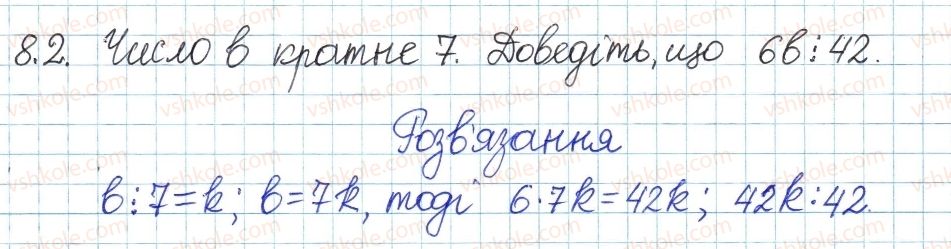 8.2. Число в кратне 7. Доведіть, що 6в⋮42.
Розв'язання
в⋮7=k; в=7k, тоді 6·7k=42k; 42k:42.